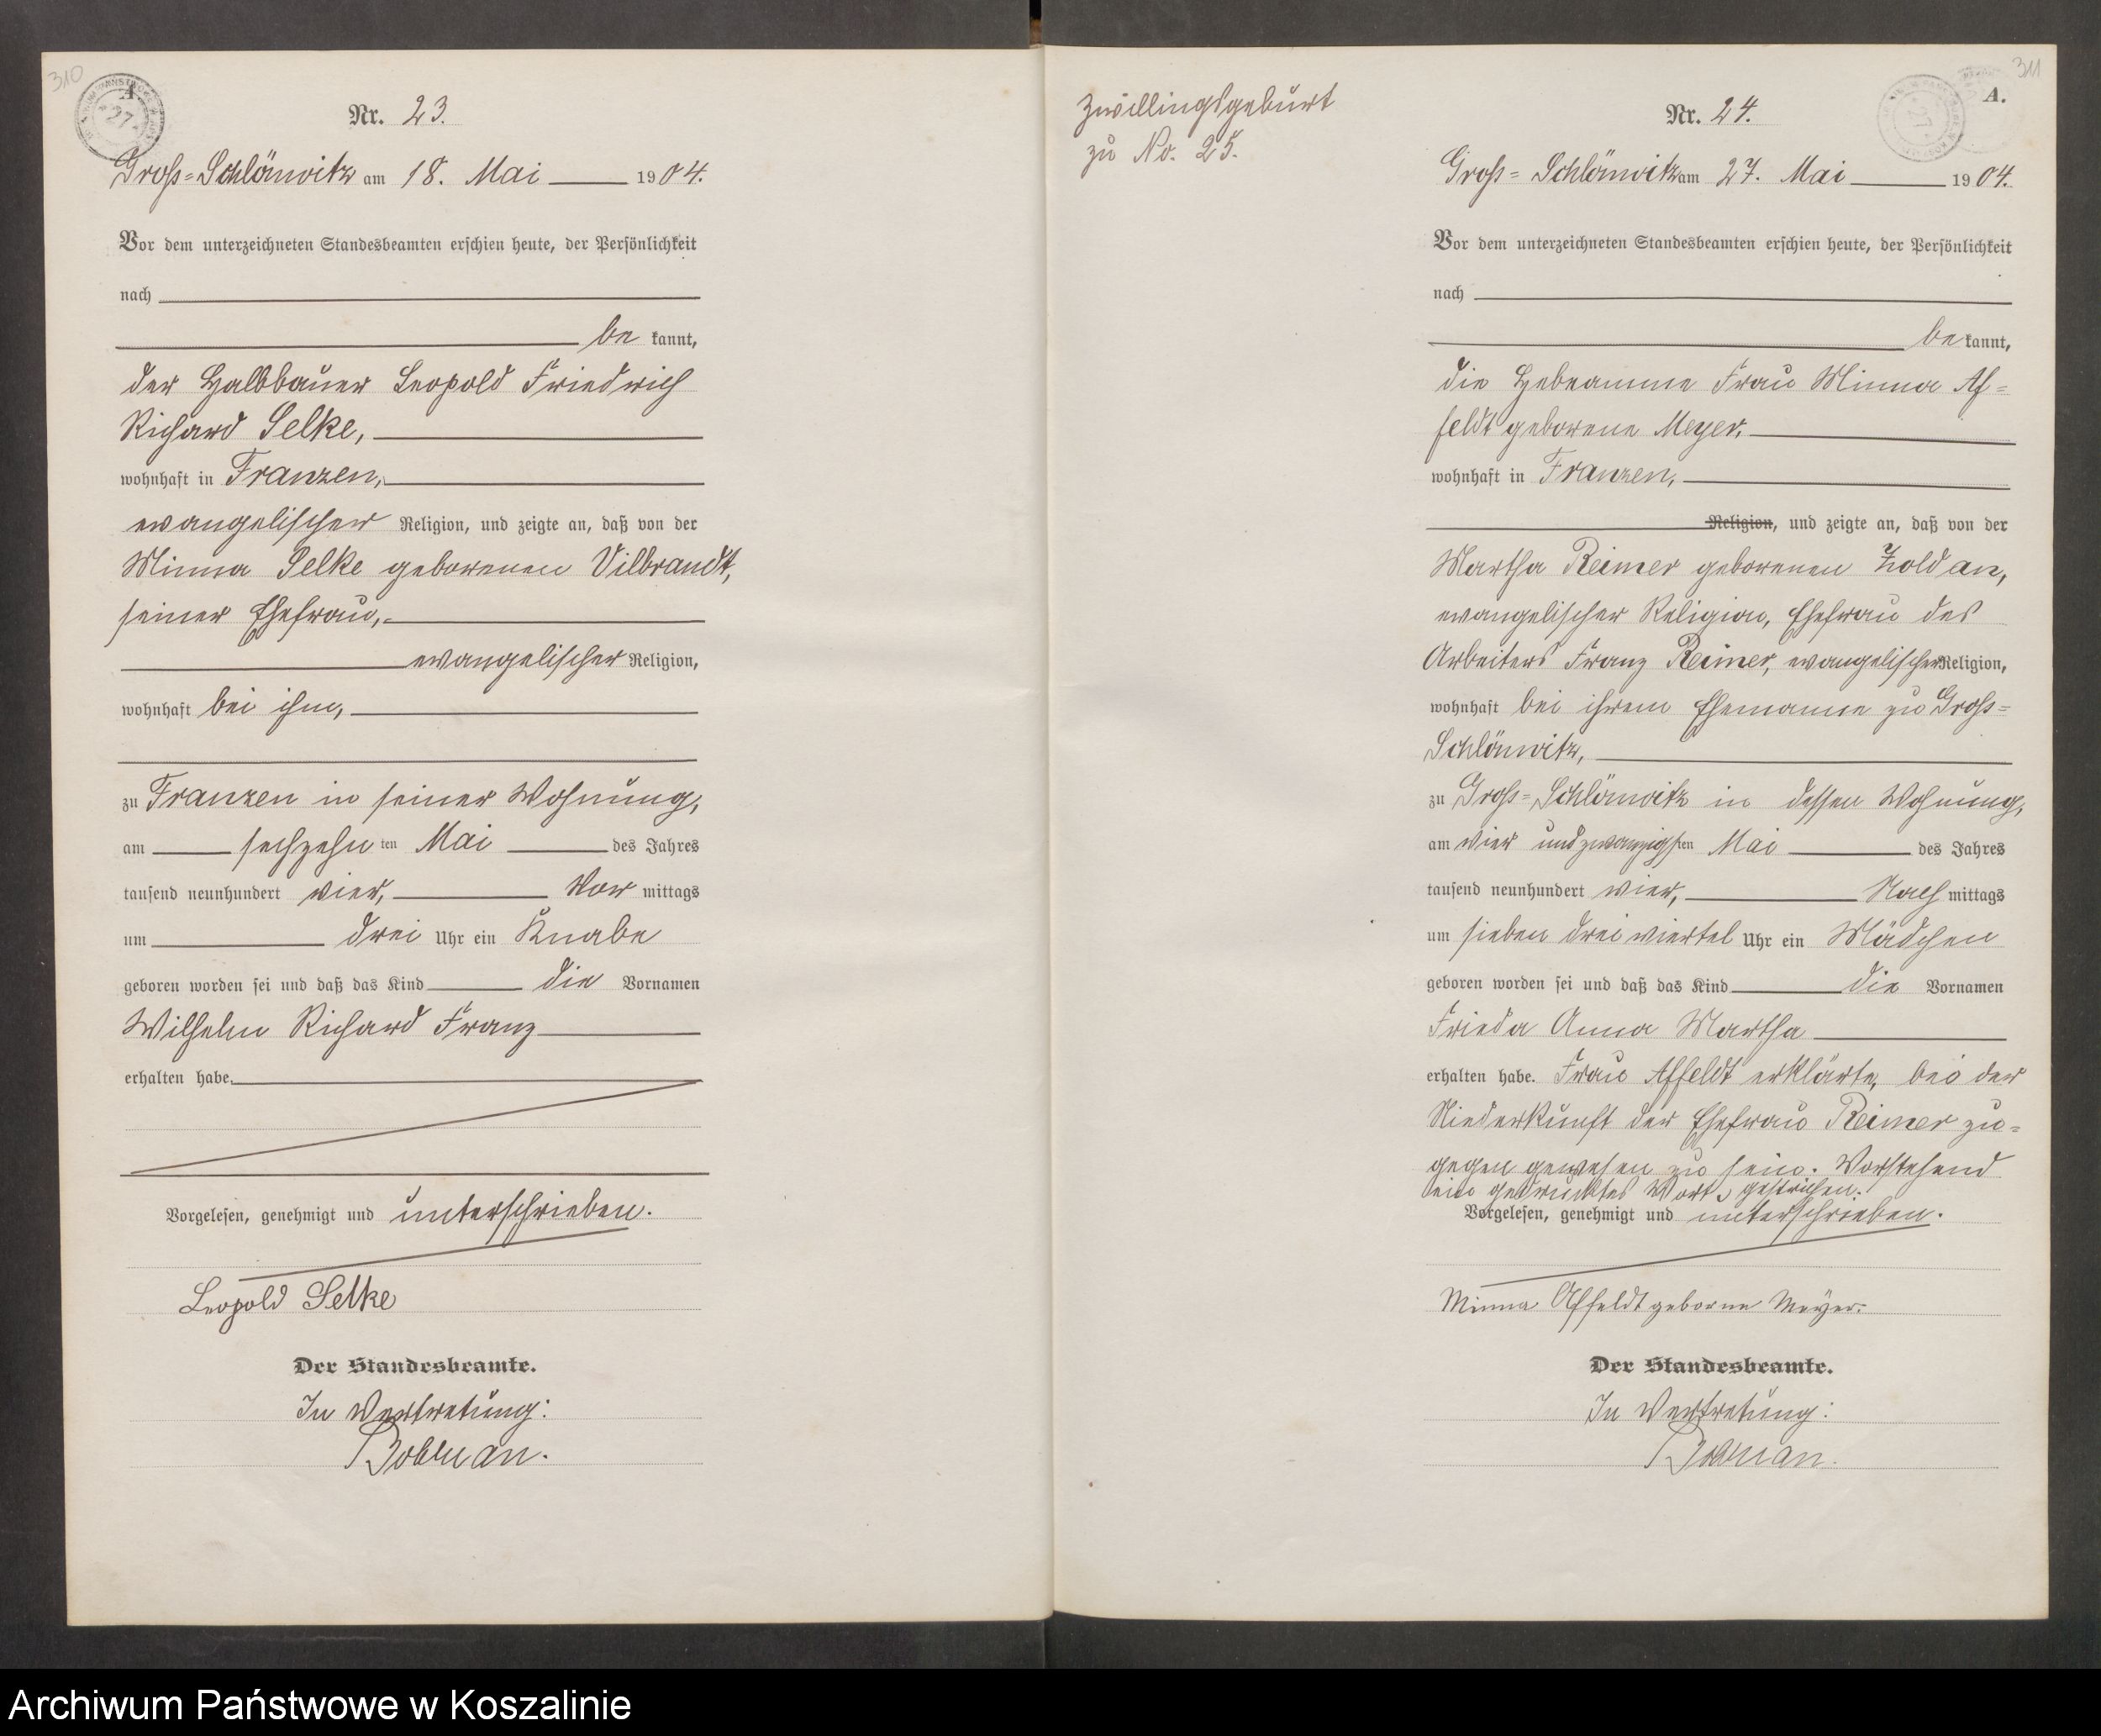 310
A.
27
Nr. 23.
Groß=Schlönwitz am 18. Mai 1904.
Vor dem unterzeichneten Standesbeamten erschien heute, der Persönlichkeit
nach
be kannt,
der Halbbauer Leopold Friedrich
Richard Selke,
wohnhaft in Franzen,
evangelischer Religion, und zeigte an, daß von der
Minna Selke geborenen Vilbrandt,
seiner Ehefrau,
evangelischer Religion,
wohnhaft bei ihm,
zu Franzen in seiner Wohnung,
am sechzehn ten Mai des Jahres
tausend neunhundert vier, Vor mittags
um drei Uhr ein Knabe
geboren worden sei und daß das Kind die Vornamen
Wilhelm Richard Franz
erhalten habe.
Vorgelesen, genehmigt und unterschrieben.
Leopold Selke
Der Standesbeamte.
In Vertretung:
311
A.
Zwillingsgeburt
zu No. 25.
Nr. 24.
Groß=Schlönwitz am 27. Mai 1904.
Vor dem unterzeichneten Standesbeamten erschien heute, der Persönlichkeit
nach
be kannt,
die Hebeamme Frau Minna Af=
feldt geborene Meyer,
wohnhaft in Franzen,
Religion, und zeigte an, daß von der
Martha Reimer geborenen Zoldan,
evangelischer Religion, Ehefrau des
Arbeiters Franz Reimer, evangelischer Religion,
wohnhaft bei ihrem Ehemanne zu Groß=
Schlönwitz,
zu Groß=Schlönwitz in dessen Wohnung,
am vier und zwanzigsten Mai des Jahres
tausend neunhundert vier, Nach mittags
um sieben drei viertel Uhr ein Mädchen
geboren worden sei und daß das Kind die Vornamen
Frieda Anna Martha
erhalten habe. Frau Affeldt erklärte, bei der
Niederkunft der Ehefrau Reimer zu=
gegen gewesen zu sein. Vorstehend
ein gedrucktes Wort gestrichen.
Vorgelesen, genehmigt und unterschrieben.
Minna Affeldt geborne Meyer.
Der Standesbeamte.
In Vertretung:
Archiwum Państwowe w Koszalinie